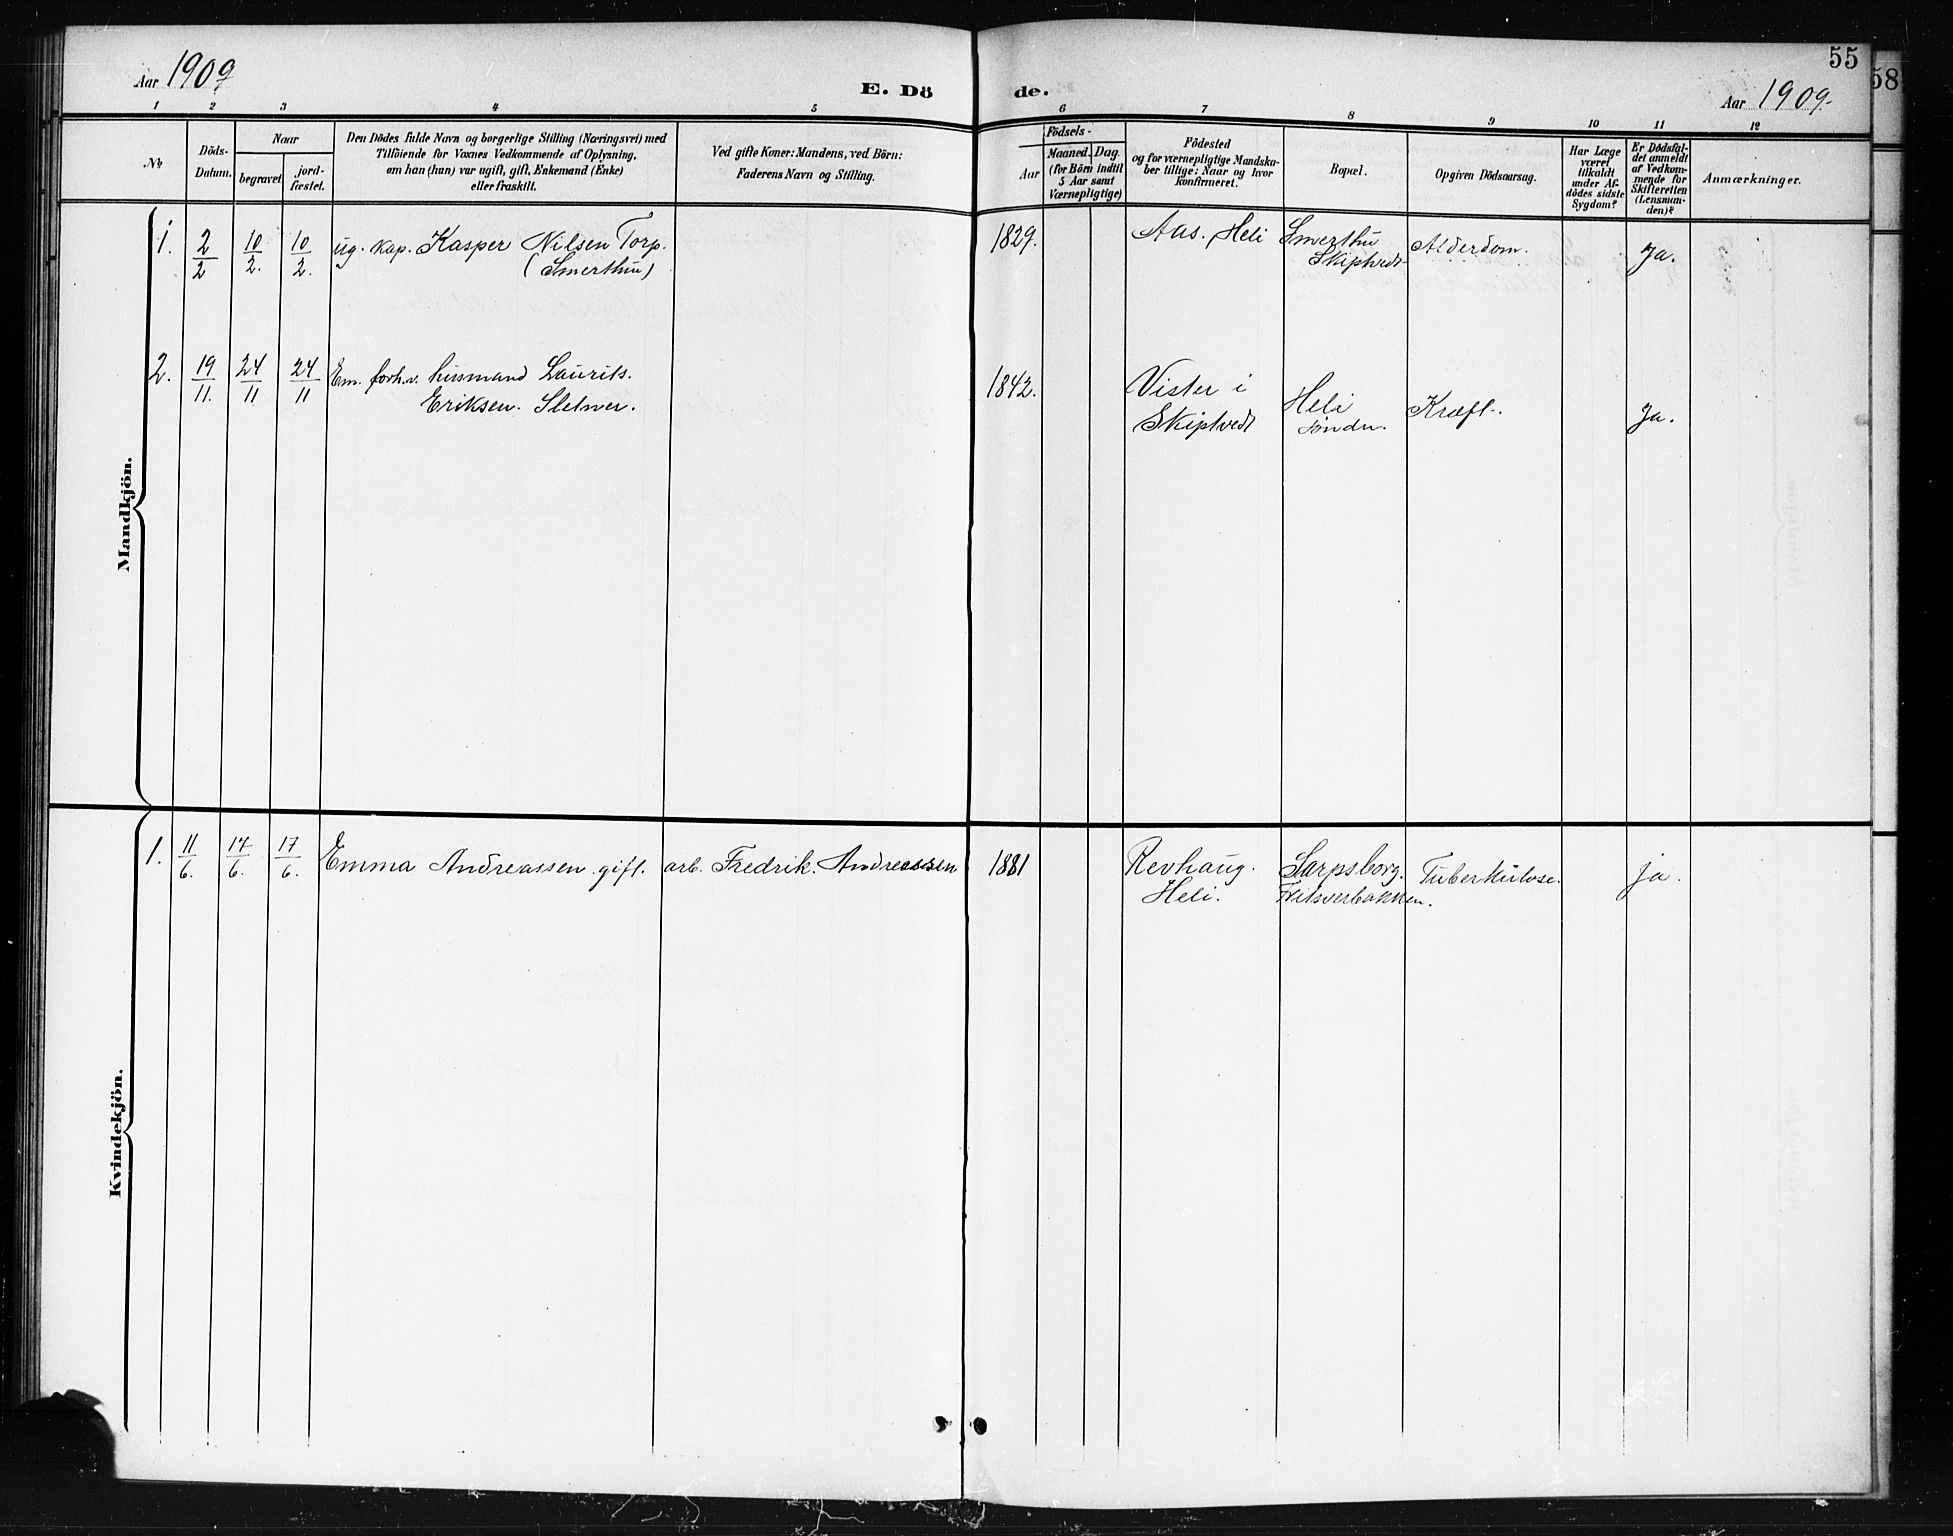 Aar 1909
E. Dö
de.
Aar 1909.
55
58
1 2 3 4 5 6 7 8 9 10 11 12
No
Döds-
Datum.
Naar
begravet.
jord-
fæstet.
Den Dödes fulde Navn og borgerlige Stilling (Næringsvei) med
Tilföiende for Voxnes Vedkommende af Oplysning,
om han (hun) var ugift, gift, Enkemand (Enke)
eller fraskilt.
Ved gifte Koner: Mandens, ved Börn:
Faderens Navn og Stilling.
Födsels-
Aar
Maaned. Dag.
(for Börn indtil
5 Aar samt
Værnepligtige)
Födested
og for værnepligtige Mandska-
ber tillige: Naar og hvor
konfirmeret.
Bopæl.
Opgiven Dödsaarsag.
Har Læge
været
tilkaldt
under Af-
dödes sidste
Sygdom?
Er Dödsfal-
det anmeldt
af Vedkom-
mende for
Skifteretten
(Lensman-
den)?
Anmærkninger.
Mandkjön.
1. 2/2 10/2. 10/2. ug. kap. Kasper Nilsen Torp. 1829. Aas. Heli Smerthu Alderdom. Ja.
(Smerthu) Skiptvedt
2. 19/11. 24/11 24/11 Em. forh.v. husmand Laurits. 1842. Vister i Heli Kræft. Ja.
Eriksen. Sletner. Skiptvedt Söndre.
Kvindekjön.
1. 11/6. 17/6. 17/6. Emma Andreassen gift. arb. Fredrik. Andreassen 1881 Revhaug. Sarpsborg. Tuberkulose. ja.
Heli.